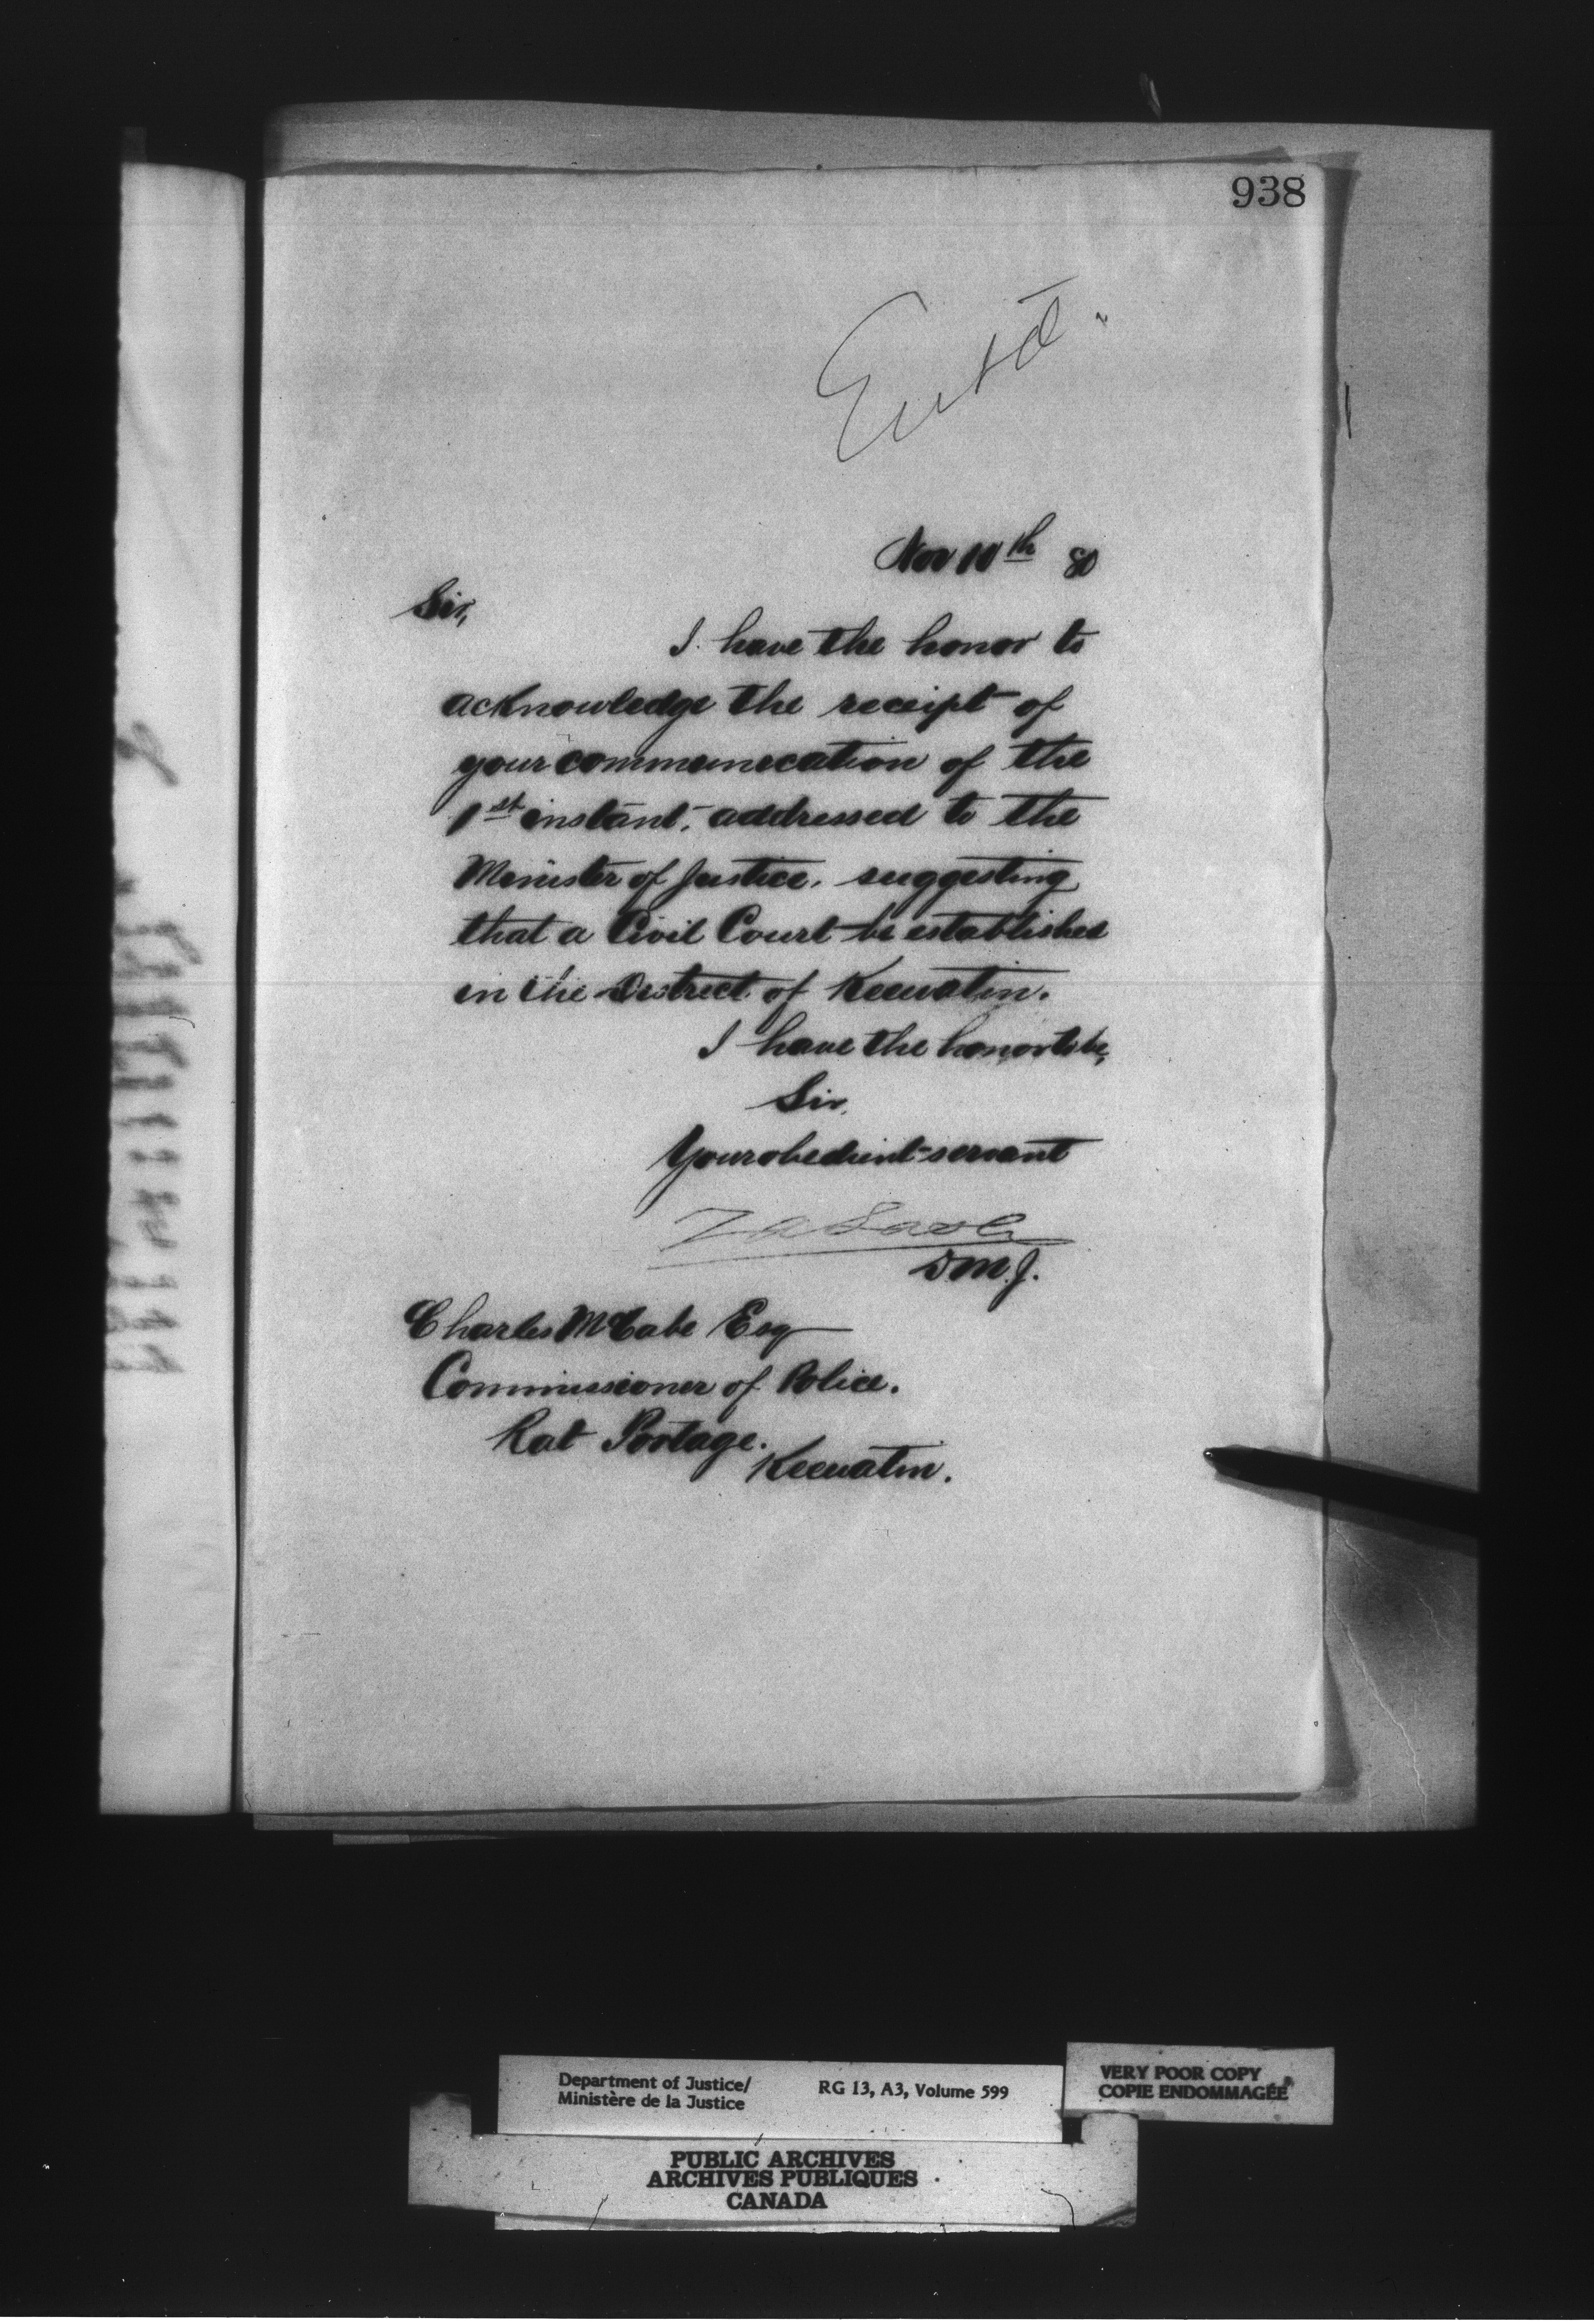 938
Entd.
Nov 10th 80
Sir,
I have the honor to
acknowledge the receipt of
your communication of the
1st instant, addressed to the
Minister of Justice, suggesting
that a Civil Court be established
in the District of Keewatin.
I have the honor to be,
Sir,
Your obedient servant
Z A Lash
DM.J.
Charles McCabe Esq
Commissioner of Police.
Rat Portage.
Keewatin.
Department of Justice/
Ministère de la Justice
RG 13, A3, Volume 599
VERY POOR COPY
COPIE ENDOMMAGÉE
PUBLIC ARCHIVES
ARCHIVES PUBLIQUES
CANADA